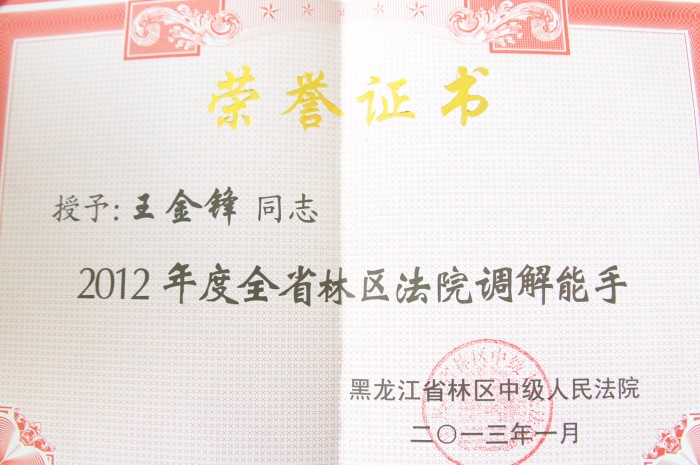 荣誉证书
授予:王金锋 同志
2012年度全省林区法院调解能手
黑龙江省林区中级人民法院
二〇一三年一月